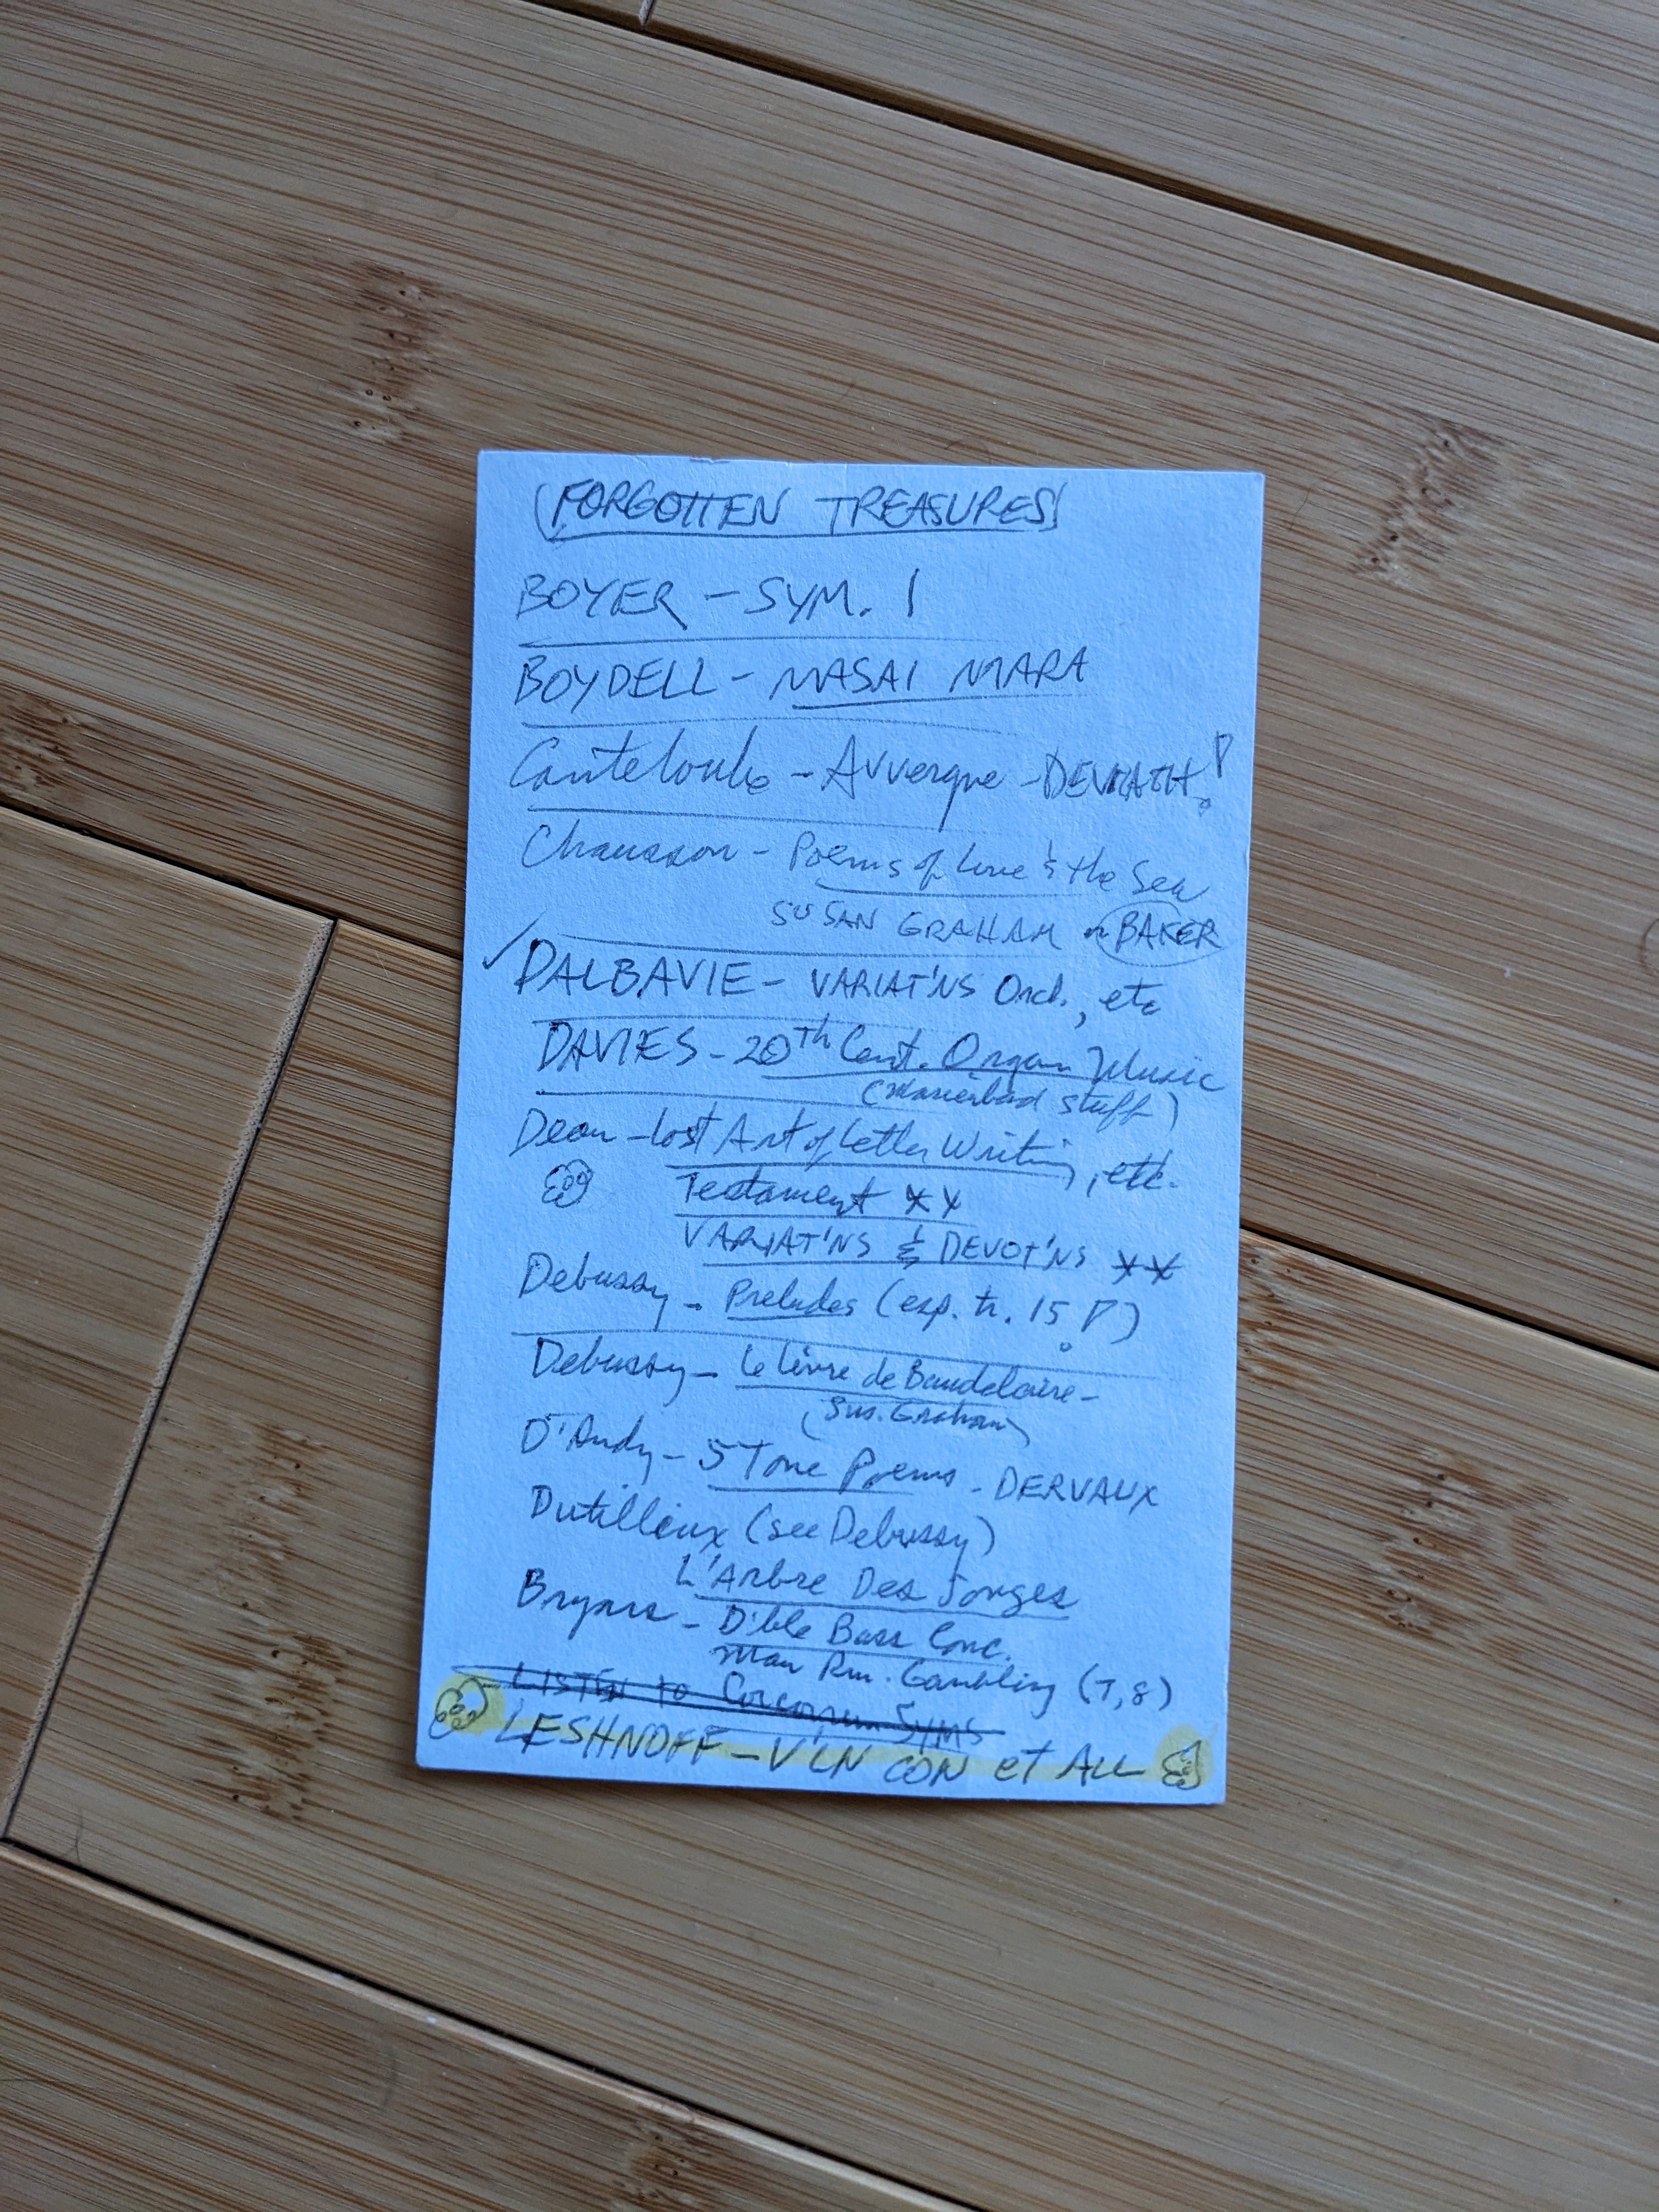 (FORGOTTEN TREASURES)
BOYER – SYM. 1
BOYDELL – MASAI MARA
Canteloube – Auvergne – DEVRATH!
Chausson – Poems of Love & the Sea
SUSAN GRAHAM or BAKER
✓ DALBAVIE – VARIAT'NS Orch., etc
DAVIES – 20th Cent. Organ Music
(Marienbad stuff)
Dean – Lost Art of Letter Writing, etc.
Testament **
VARIAT'NS & DEVOT'NS **
Debussy – Preludes (esp. tr. 15!)
Debussy – Le Livre de Baudelaire –
(Sus. Graham)
D'Indy – 5 Tone Poems – DERVAUX
Dutilleux (see Debussy)
L'Arbre Des Songes
Bryars – D'ble Bass Conc.
Man Rm. Gambling (7, 8)
LISTEN to Corcoran SYMS
LESHNOFF – V'LN CON et ALL